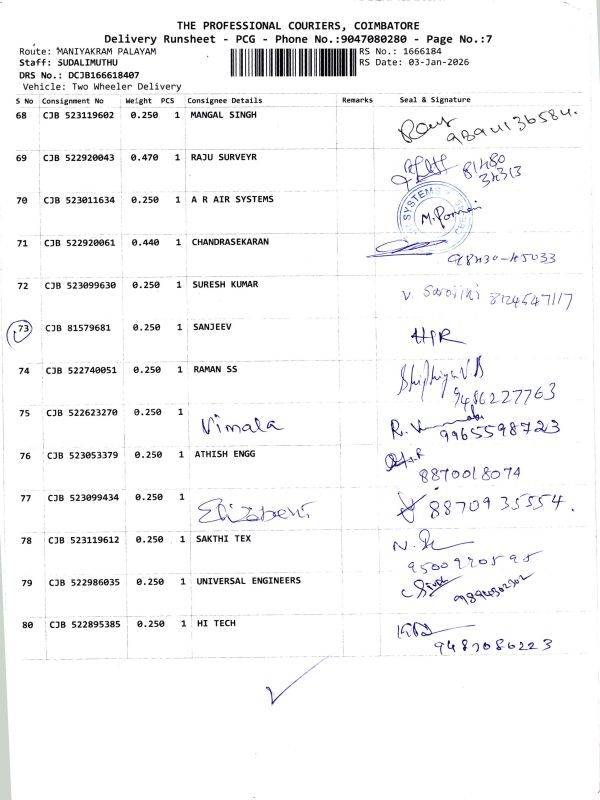 THE PROFESSIONAL COURIERS, COIMBATORE
Delivery Runsheet - PCG - Phone No.:9047080280 - Page No.:7
Route: MANIYAKRAM PALAYAM RS No.: 1666184
Staff: SUDALIMUTHU RS Date: 03-Jan-2026
DRS No.: DCJB166618407
Vehicle: Two Wheeler Delivery
S No Consignment No Weight PCS Consignee Details Remarks Seal & Signature
68 CJB 523119602 0.250 1 MANGAL SINGH
9894136584.
69 CJB 522920043 0.470 1 RAJU SURVEYR
81480
34313
70 CJB 523011634 0.250 1 A R AIR SYSTEMS
SYSTEMS
71 CJB 522920061 0.440 1 CHANDRASEKARAN
98430-45033
72 CJB 523099630 0.250 1 SURESH KUMAR
V. Sarojini 8124547117
73 CJB 81579681 0.250 1 SANJEEV
74 CJB 522740051 0.250 1 RAMAN SS
9486227763
75 CJB 522623270 0.250 1 Vimala
9965598723
76 CJB 523053379 0.250 1 ATHISH ENGG
8870018074
77 CJB 523099434 0.250 1
8870935554.
78 CJB 523119612 0.250 1 SAKTHI TEX
9500220595
79 CJB 522986035 0.250 1 UNIVERSAL ENGINEERS
80 CJB 522895385 0.250 1 HI TECH
9487086223